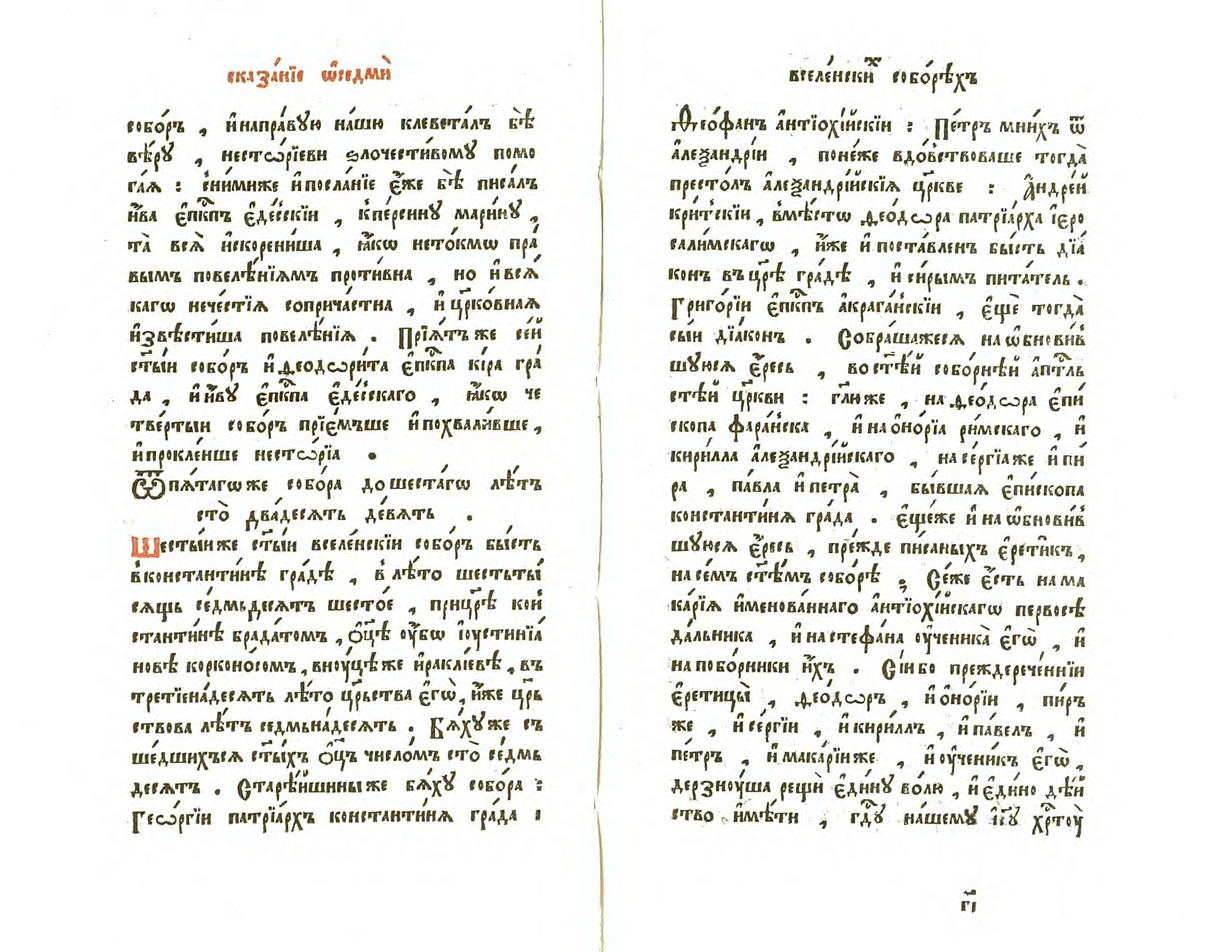 сказа́нїе ѡ҆седмѝ
собо́ръ , и҆напра́вꙋю на́шю клевета́лъ бѣ̀
вѣ́рꙋ , несто́рїеви ѕлочести́вомꙋ помо
га́ѧ : сни́миже и҆посла́нїе є҆́же бѣ̀ писа́лъ
и҆́ва є҆пⷭ҇кпъ є҆де́сскїи , кпе́рсинꙋ мари́нꙋ ,
та̀ всѧ̑ и҆скорени́ша , ꙗ҆́кѡ нето́кмѡ пра́
вымъ повелѣ́нїѧмъ проти́вна , но и҆всѧ́
кагѡ нече́стїѧ соприча́стна , и҆ цр҃ко́внаѧ
и҆звѣсти́ша повелѣ́нїѧ . Прїѧ́тъ же се́й
ст҃ы́и собо́ръ и҆ѳеодѡри́та є҆пⷭ҇кпа кі́ра гра́
да , и҆и҆́вꙋ є҆пⷭ҇кпа є҆де́сскаго , ꙗ҆́кѡ че
тве́ртыи собо́ръ прїе́мъше и҆похвали́вше ,
и҆прокле́нше несто́рїа .
Ѿ пѧ́тагѡ же собо́ра до шеста́гѡ лѣ́тъ
сто̀ два́десѧть де́вѧть .
Шесты́иже ст҃ы́и вселе́нскїи собо́ръ бы́сть
вконстанти́нѣ гра́дѣ , в лѣ́то шестьты́
сѧщь се́дмьдесѧтъ шесто́е , прицр҃ѣ ко́н
станти́нѣ брада́томъ , ѻ҆ц҃ѣ ᲂу҆́бѡ і҆оусти́нїа
новѣ корконо́сомъ, вноу́цѣже и҆ра́клїевѣ , въ
третїена́десѧть лѣ́то цр҃ьства є҆гѡ̀, и҆́же цр҃ь
ствова лѣ́тъ седмьна́десѧть . Бѧ́хꙋже съ
ше́дшихъсѧ ст҃ы́хъ ѻ҆ц҃ъ число́мъ сто̀ се́дмь
десѧтъ . Старѣ́йшиныже бѧ́хꙋ собо́ра :
Гео́ргїи патрїа́рхъ константи́нѧ гра́да :
вселе́нскиⷯ собо́рѣхъ
Ѳео́фанъ а҆нтїохі́йскїи : Пе́тръ мни́хъ ѿ
а҆леѯандрі́и , поне́же вдо́вствоваше тогда̀
престо́лъ а҆леѯандрі́йскїѧ цр҃кве : А҆ндре́й
кри́тскїи , вмѣ́стѡ ѳеодѡ́ра патрїа́рха і҆еро
сали́мскагѡ , и҆́же и҆ поста́вленъ бы́сть дїа́
конъ въ цр҃ѣ гра́дѣ , и҆ си́рымъ пита́тель .
Григо́рїи є҆пⷭ҇кпъ а҆крага́нскїи , є҆щѐ тогда̀
сы́и дїа́конъ . Собра́шажесѧ на ѡ҆бнови́в
шꙋюсѧ є҆́ресь , во ст҃ѣ́й собо́рнѣй а҆пⷭ҇тлъ
стѣ́й цр҃кви : гл҃юже , на ѳеодѡ́ра є҆пи́
скопа фара́нска , и҆ на ѻ҆но́рїа ри́мскаго , и҆
кири́лла а҆леѯандрі́йскаго , на се́ргїаже и҆ пи́
ра , па́вла и҆ петра̀ , бы́вшаѧ є҆пи́скопа
константи́нѧ гра́да . є҆ще́же и҆ на ѡ҆бнови́в
шꙋюсѧ є҆́ресь , пре́жде пи́саныхъ є҆рети́къ ,
на се́мъ ст҃ѣ́мъ собо́рѣ ; Се́же є҆́сть на ма
ка́рїѧ и҆менова́ннаго а҆нтїохі́йскагѡ первосѣ
да́льника , и҆ на стефа́на ᲂу҆ченика̀ є҆гѡ̀ , и҆
на побо́рники и҆́хъ . Сі́и бо преждерече́ннїи
є҆рети́цы , ѳео́дѡръ , и҆ ѻ҆но́рїи , пи́ръ
же , и҆ се́ргїи , и҆ кири́ллъ , и҆ па́велъ , и҆
пе́тръ , и҆ мака́рїиже , и҆ ᲂу҆чени́къ є҆гѡ̀ ,
дерзноу́ша рещѝ є҆ди́нꙋ во́лю , и҆ є҆ди́но дѣ́й
ство и҆мѣ́ти , гдⷭ҇ꙋ на́шемꙋ і҆с҃ꙋ хрⷭ҇тоу̀
г҃і